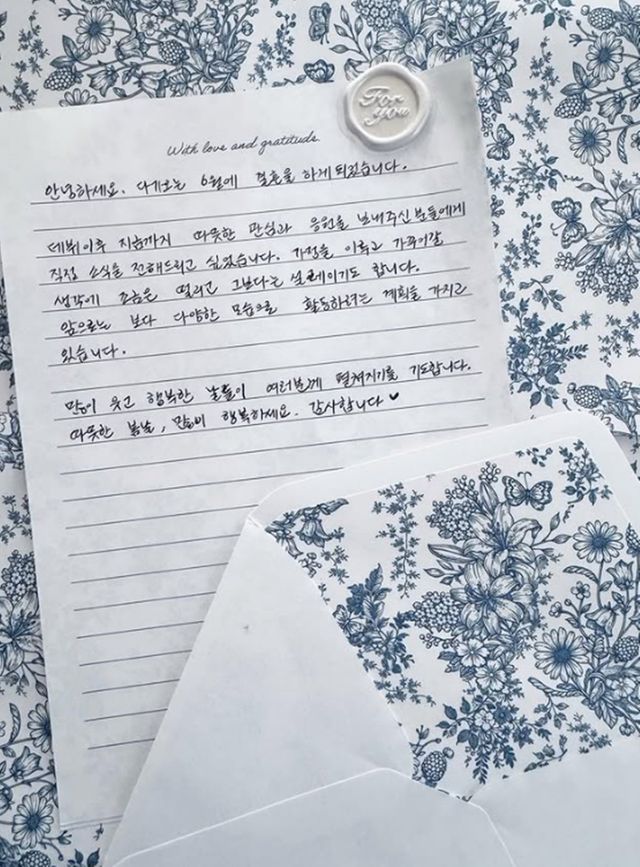 For you
With love and gratitude.
안녕하세요. 다가오는 6월에 결혼을 하게 되었습니다.
데뷔이후 지금까지 따뜻한 관심과 응원을 보내주신분들에게
직접 소식을 전해드리고 싶었습니다. 가정을 이루고 가꾸어갈
생각에 조금은 떨리고 그보다는 설레이기도 합니다.
앞으로는 보다 다양한 모습으로 활동하려는 계획을 가지고
있습니다.
많이 웃고 행복한 날들이 여러분께 펼쳐지기를 기도합니다.
따뜻한 봄날, 많이 행복하세요. 감사합니다 ♥